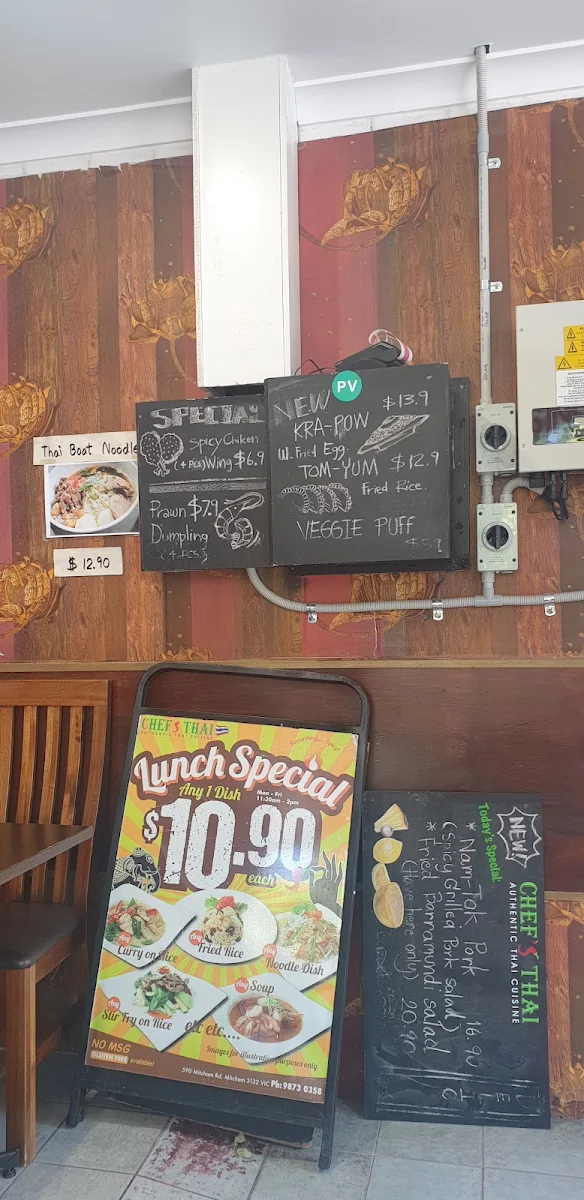 Thai Boat Noodle
$ 12.90
SPECIAL
Spicy Chicken
(4 pcs) Wing $6.9
Prawn $7.9
Dumpling
(4 PCS)
PV
NEW $13.9
KRA-POW
W. Fried Egg.
TOM-YUM $12.9
Fried Rice.
VEGGIE PUFF
$5.9
CHEF'S THAI
AUTHENTIC THAI CUISINE
Lunch Special
Any 1 Dish
Mon - Fri
11:30am - 3pm
$10.90
each
Any Curry on Rice
Any Fried Rice
Any Noodle Dish
Any Stir Fry on Rice
Any Soup
etc etc....
Images for illustration purposes only
NO MSG
GLUTEN FREE available!
590 Mitcham Rd, Mitcham 3132 VIC Ph: 9873 0358
CHEF'S THAI
AUTHENTIC THAI CUISINE
NEW
Today's Special:
* Nam-Tok Pork 16.90
(Spicy Grilled Pork salad)
* Fried Barramundi salad
(Have here only) 20.90